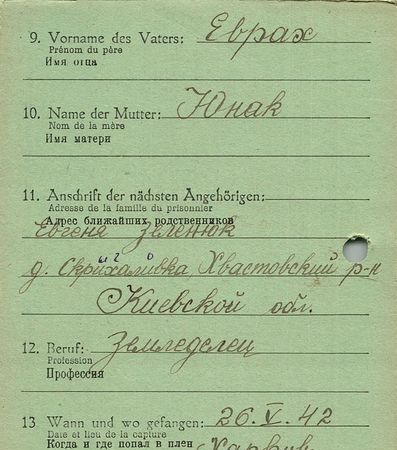 9. Vorname des Vaters: Еврах
Prénom du père
Имя отца
10. Name der Mutter: Юнак
Nom de la mère
Имя матери
11. Anschrift der nächsten Angehörigen:
Adresse de la famille du prisonnier
Адрес ближайших родственников
Евгеня Зеленюк
д. Скрихалівка, Хвастовский р-н
Киевской обл.
12. Beruf: Земледелец
Profession
Профессия
13 Wann und wo gefangen: 26.V.42
Date et lieu de la capture
Когда и где попал в плен